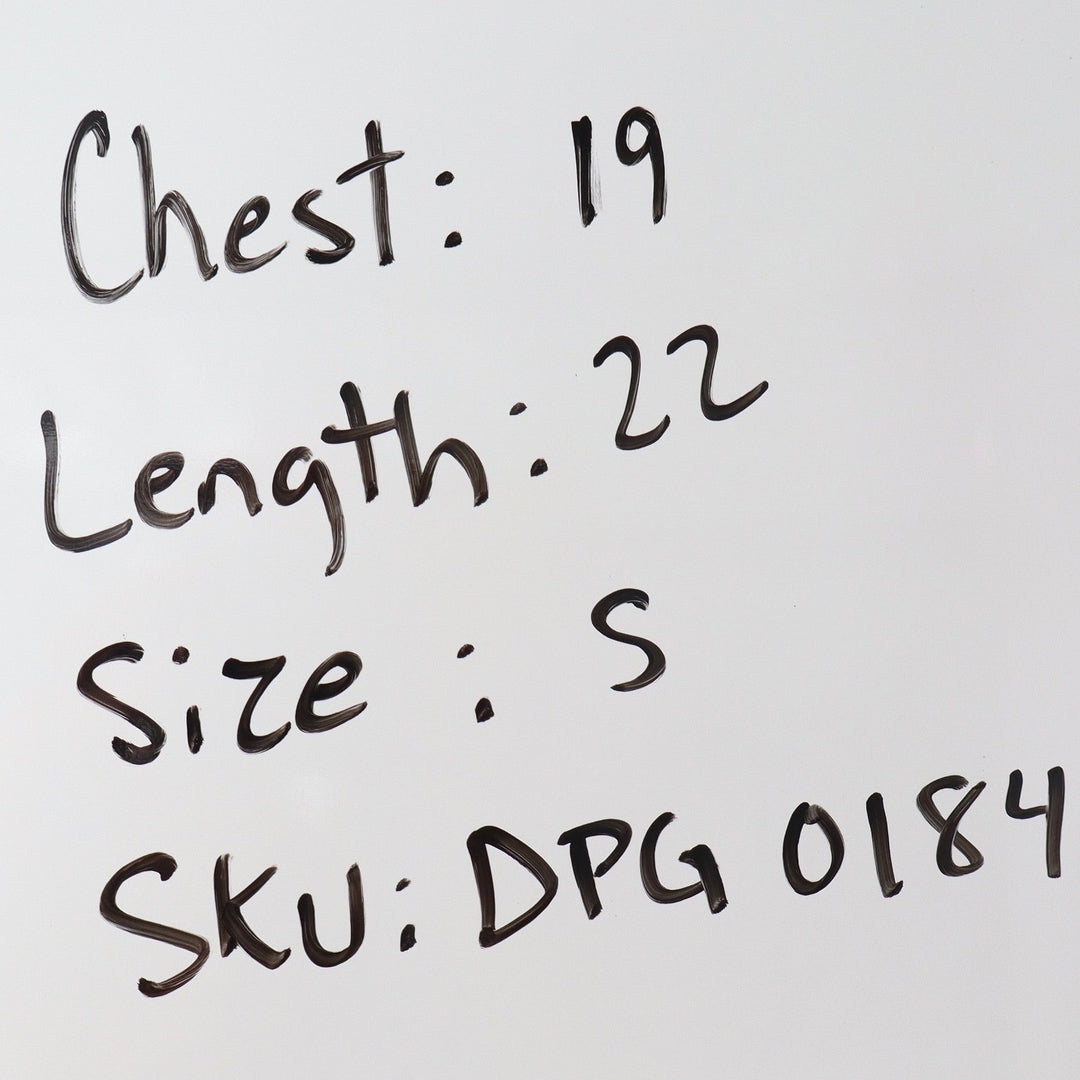 Chest: 19
Length: 22
Size : S
SKU: DPG 0184